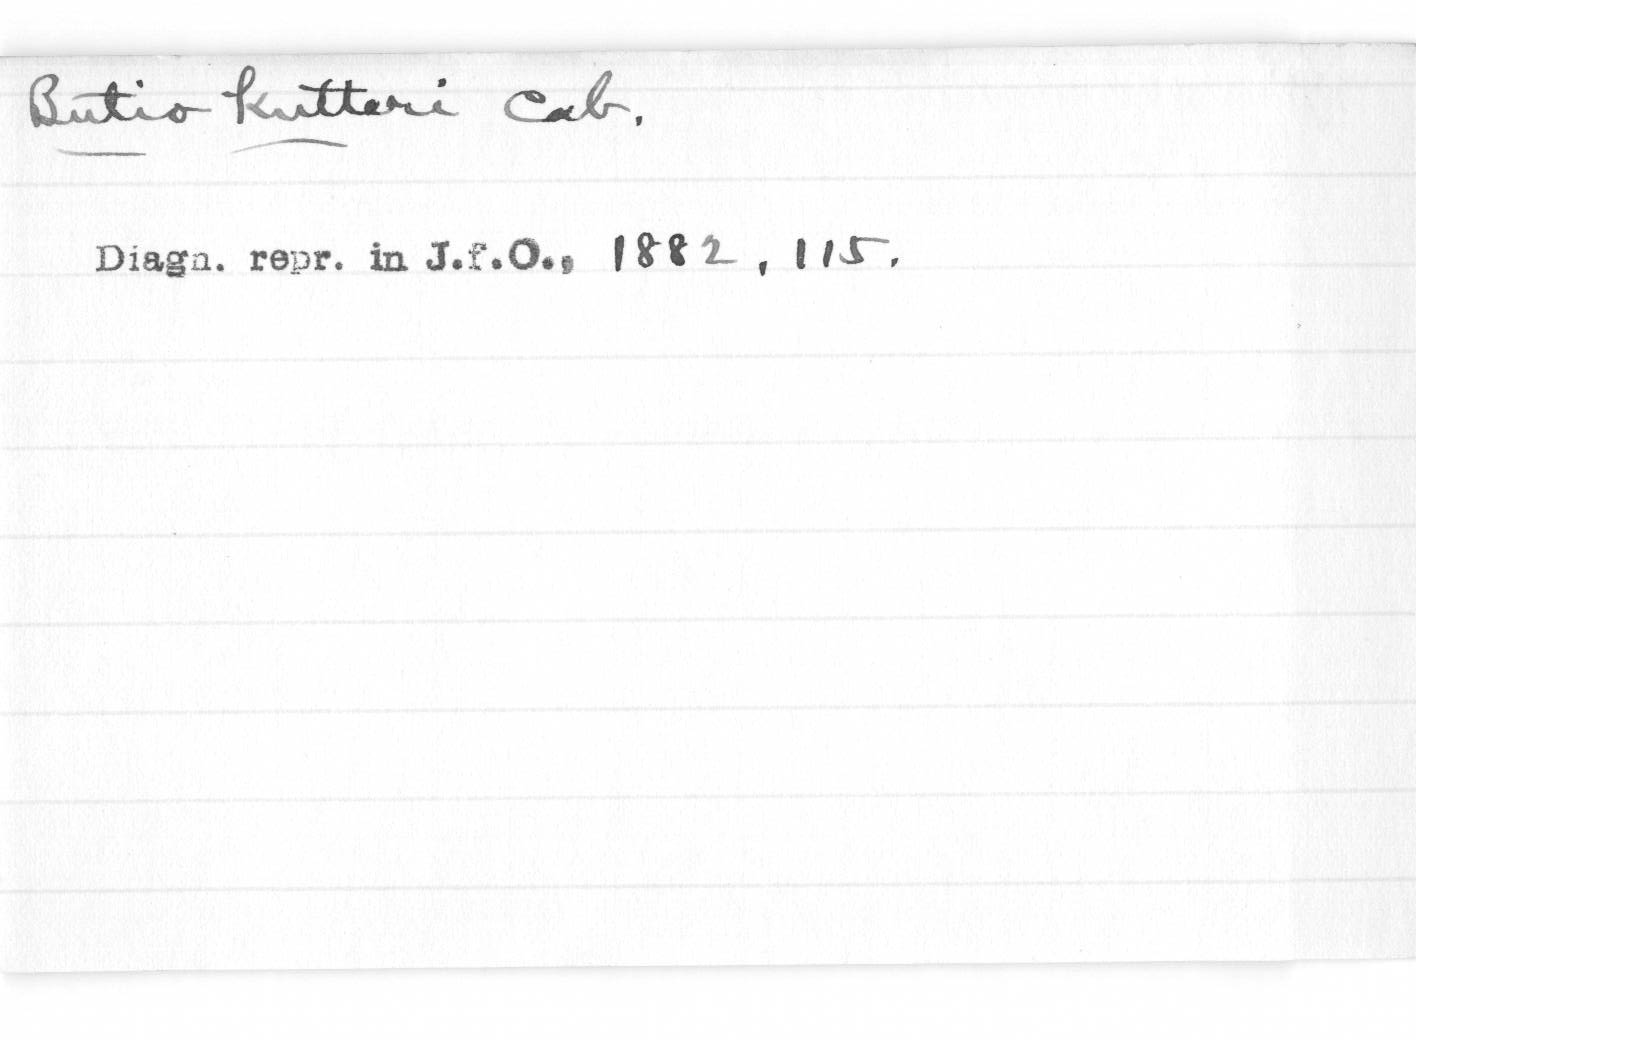 Butio kutteri Cab.
Diagn. repr. in J.f.O., 1882, 115.